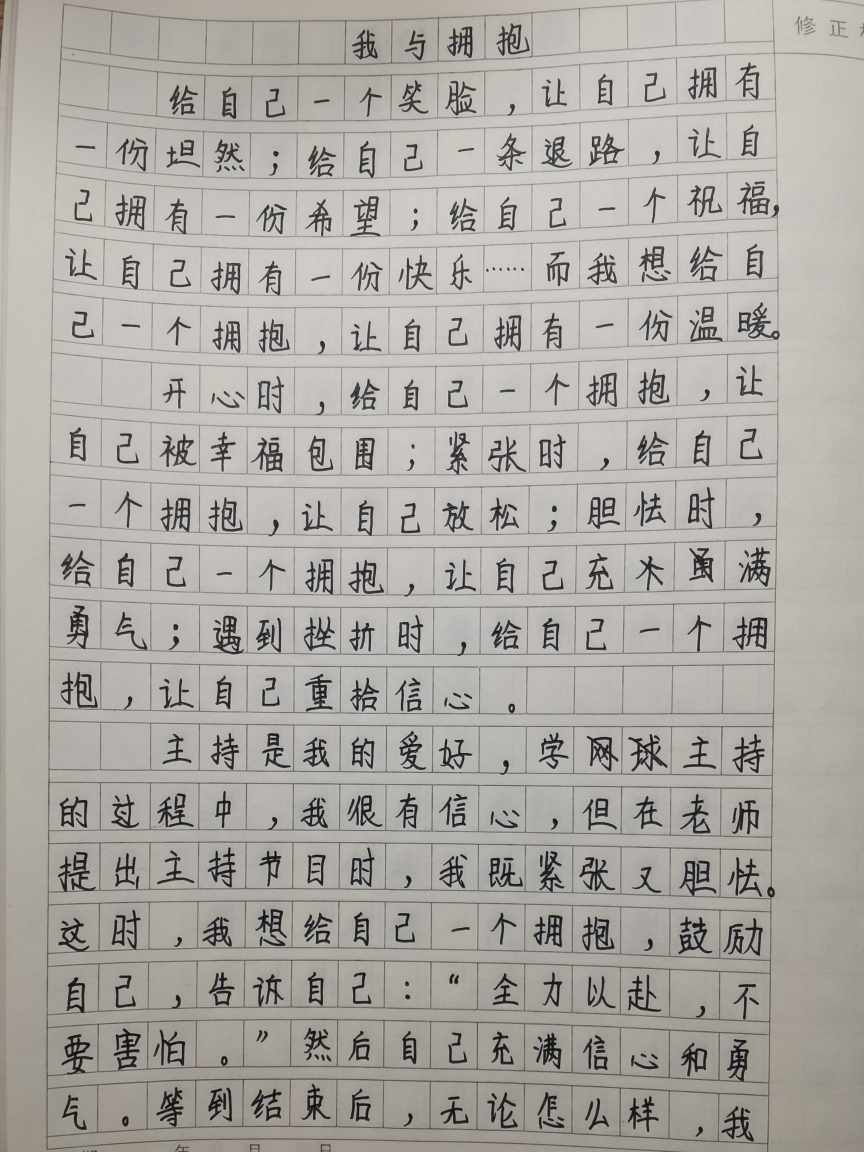 修正
我与拥抱
给自己一个笑脸，让自己拥有
一份坦然；给自己一条退路，让自
己拥有一份希望；给自己一个祝福，
让自己拥有一份快乐……而我想给自
己一个拥抱，让自己拥有一份温暖。
开心时，给自己一个拥抱，让
自己被幸福包围；紧张时，给自己
一个拥抱，让自己放松；胆怯时，
给自己一个拥抱，让自己充满
勇气；遇到挫折时，给自己一个拥
抱，让自己重拾信心。
主持是我的爱好，学网球主持
的过程中，我很有信心，但在老师
提出主持节目时，我既紧张又胆怯。
这时，我想给自己一个拥抱，鼓励
自己，告诉自己：“全力以赴，不
要害怕。”然后自己充满信心和勇
气。等到结束后，无论怎么样，我
年 月 日